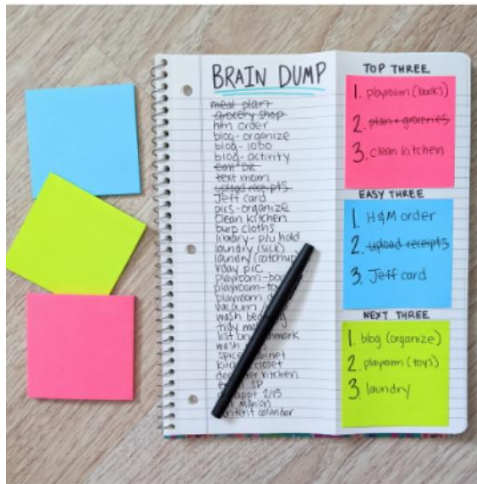 BRAIN DUMP
meal plan
grocery shop
h&m order
blog-organize
blog-1080
blog-activity
text mom
upload receipts
Jeff card
pics-organize
clean kitchen
burp cloths
library-p/u hold
laundry (sick)
laundry (catchup)
vday pic
playroom-
playroom-
playroom
vacuum
wash
tidy
list
wash
spice cabinet
closet
kitchen
SP
2/15
content calendar
TOP THREE
1. playroom (books)
2. plan + groceries
3. clean kitchen
EASY THREE
1. H&M order
2. upload receipts
3. Jeff card
NEXT THREE
1. blog (organize)
2. playroom (toys)
3. laundry